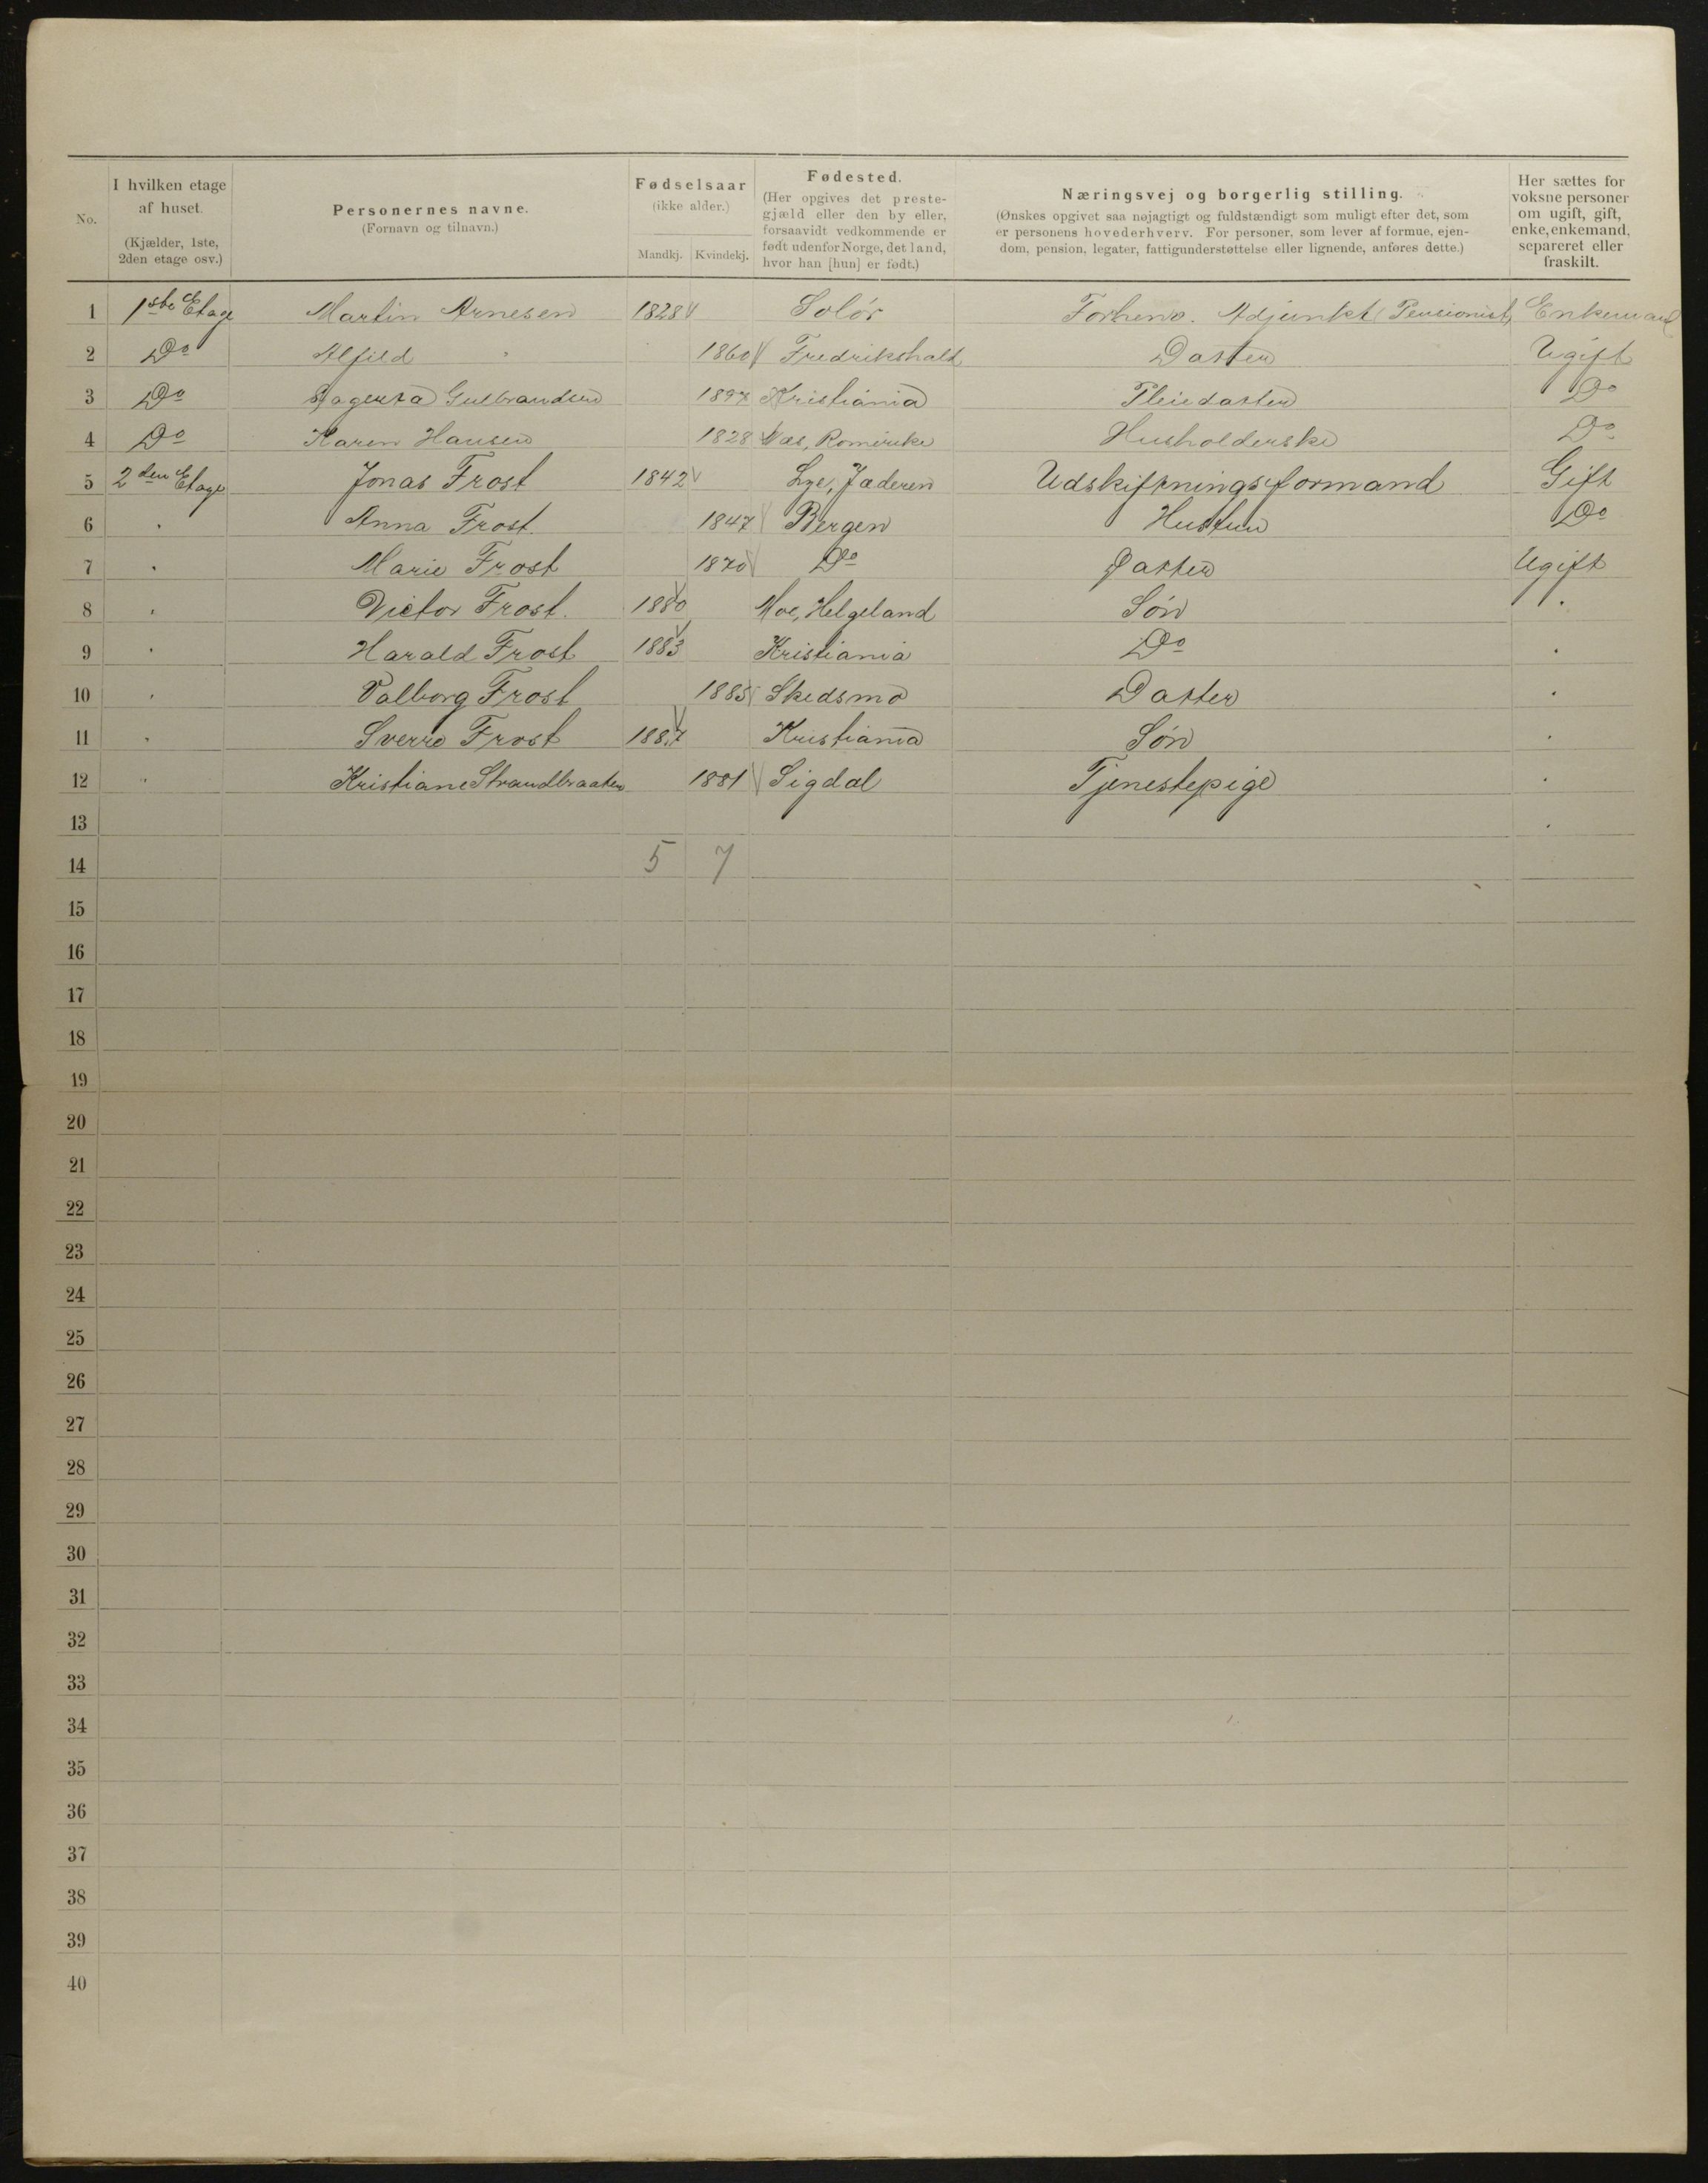 No. I hvilken etage af huset. (Kjælder, 1ste, 2den etage osv.) Personernes navne. (Fornavn og tilnavn.) Fødselsaar (ikke alder.) Mandkj. Kvindekj. Fødested. (Her opgives det prestegjæld eller den by eller, forsaavidt vedkommende er født udenfor Norge, det land, hvor han [hun] er født.) Næringsvej og borgerlig stilling. (Ønskes opgivet saa nøjagtigt og fuldstændigt som muligt efter det, som er personens hovederhverv. For personer, som lever af formue, ejendom, pension, legater, fattigunderstøttelse eller lignende, anføres dette.) Her sættes for voksne personer om ugift, gift, enke, enkemand, separeret eller fraskilt.
1 1ste Etage Martin Arnesen 1828 Solør Forhenv. Adjunkt (Pensionist) Enkemand
2 Do Alfild " 1860 Fredrikshald Datter Ugift
3 Do Gulbrandsen 1897 Kristiania Pleiedatter Do
4 Do Karen Hansen 1828 Næs, Romerike Husholderske Do
5 2den Etage Jonas Frost 1842 Lye, Jæderen Udskiftningsformand Gift
6 " Anna Frost 1847 Bergen Hustru Do
7 " Marie Frost 1870 Do Datter Ugift
8 " Victor Frost. 1880 Moe, Helgeland Søn "
9 " Harald Frost 1883 Kristiania Do "
10 " Valborg Frost 1885 Skedsmo Datter "
11 " Sverre Frost 1887 Kristiania Søn "
12 " Kristiane Strandbraaten 1881 Sigdal Tjenestepige "
13 "
14 5 7
15
16
17
18
19
20
21
22
23
24
25
26
27
28
29
30
31
32
33
34
35
36
37
38
39
40